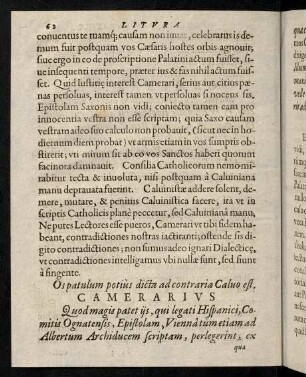 62 LITVRA
conuentus te tuamq; causam non iuuat, celebratus is de-
mum fuit postquam vos Cæsaris hostes orbis agnouit;
siue ergo in eo de proscriptione Palatini actum fuisset, si-
ue insequenti tempore, præter ius & fas nihil actum fuis-
set. Quid Iustitię interest Camerari, serius aut citius pœ-
nas persoluas, interest tamen vt persoluas si nocens sis.
Epistolam Saxonis non vidi; coniecto tamen eam pro
innocentia vestra non esse scriptam; quia Saxo causam
vestram adeo suo calculo non probauit, (sicut nec in ho-
diernum diem probat) vt armis etiam in vos sumptis ob-
stiterit; vti mirum sit ab eo vos Sanctos haberi quorum
facinora damnauit. Consilia Catholicorum nemo nomi-
nabit
rabitur tecta & inuoluta, nisi postquam à Caluiniana
manu deprauata fuerint. Caluinistæ addere solent, de-
mere, mutare, & penitus Caluinistica facere, ita vt in
scriptis Catholicis planè peccetur, sed Caluiniana manu,
Ne putes Lectores esse pueros, Camerari vt tibi fidem ha-
beant, contradictiones nostras iactitanti; ostende sis di-
gito contradictiones; non sumus adeo ignari Dialecticę,
vt contradictiones intelligamus vbi nullæ sunt, sed siunt
à fingente.
Os patulum potius dicta ad contraria Caluo est,
CAMERARIVS
Quod magis patet ijs, qui legati Hispanici, Co-
mitis Ognatensis, Epistolam, Viennâ tum etiam ad
Albertum Archiducem scriptam, perlegerint, ex
qua